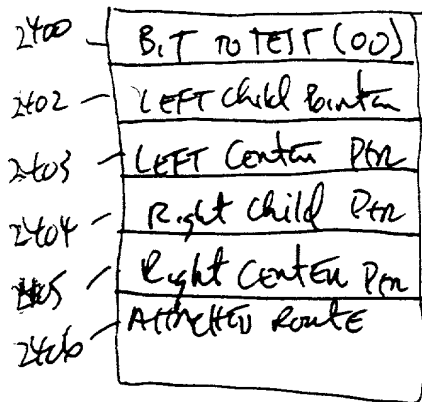 2400 BIT TO TEST (00)
2402 LEFT Child Pointer
2403 LEFT Center Ptr
2404 Right Child Ptr
2405 Right CENTER Ptr
2406 ATTACHED ROUTE